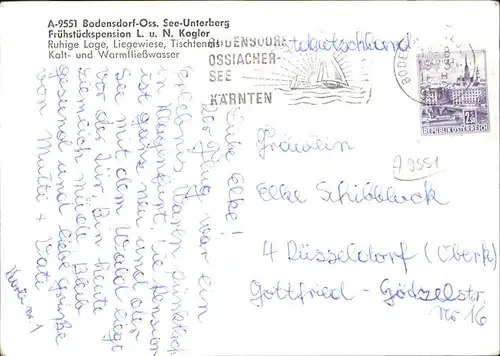 A-9551 Bodensdorf-Oss. See-Unterberg
Frühstückspension L. u. N. Kogler
Ruhige Lage, Liegewiese, Tischtennis
Kalt- und Warmfließwasser
BODENSDORF
OSSIACHER-
SEE
KÄRNTEN
Westdeutschland
REPUBLIK ÖSTERREICH
A 9551
Liebe Elke!
Der Flug war ein
Erlebnis, waren pünktlich
in Klagenfurt. Die Pension
ist ganz neu und der
See mit dem Wald liegt
vor der Tür. Bin heute
ziemlich müde. Bleib
gesund und liebe Grüße
von Mutti + Vati
Karte Nr 1
Fräulein
Elke Schibbluck
4 Düsseldorf (Oberk)
Gottfried-Gödzelstr
Nr 16